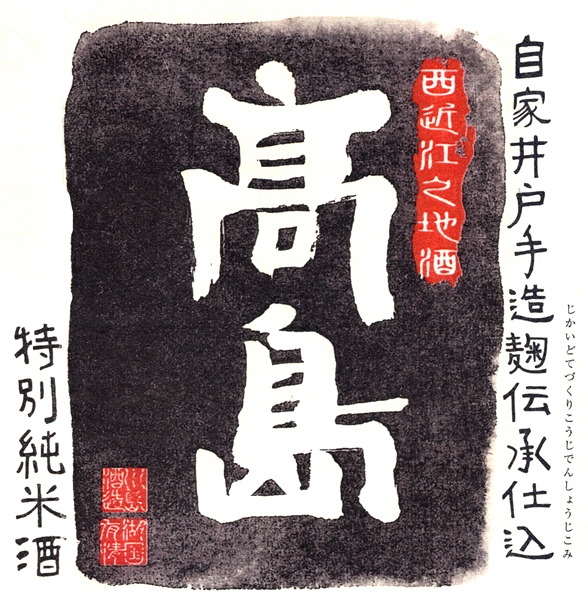 自家井戸手造麹伝承仕込
じかいどてづくりこうじでんしょうじこみ
西近江之地酒
高島
特別純米酒
酒造
湖国
有情